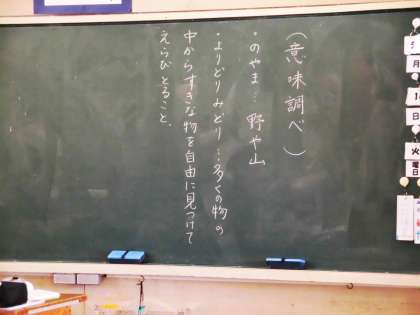 (意味調べ)
・のやま… 野や山
・よりどりみどり…多くの物の
中からすきな物を自由に見つけて
えらびとること。
月
日
火
曜